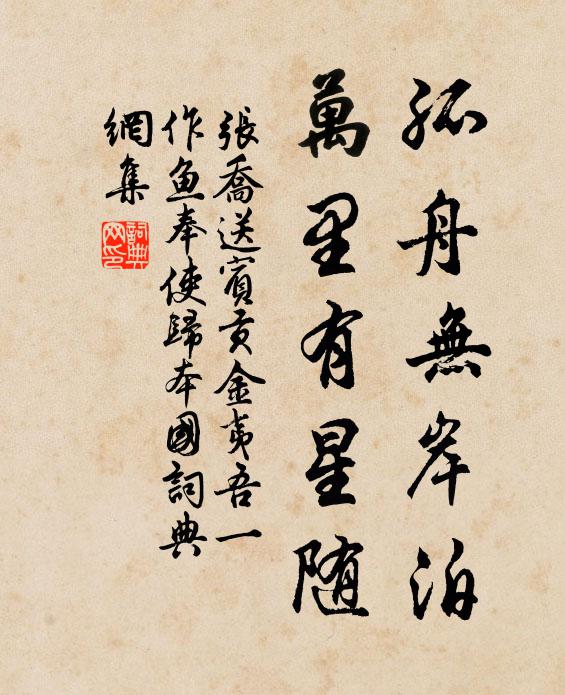 孤舟無岸泊
萬里有星随
張喬送賓貢金夷吾一
作魚奉使歸本國詞典
網集
詞典
网印